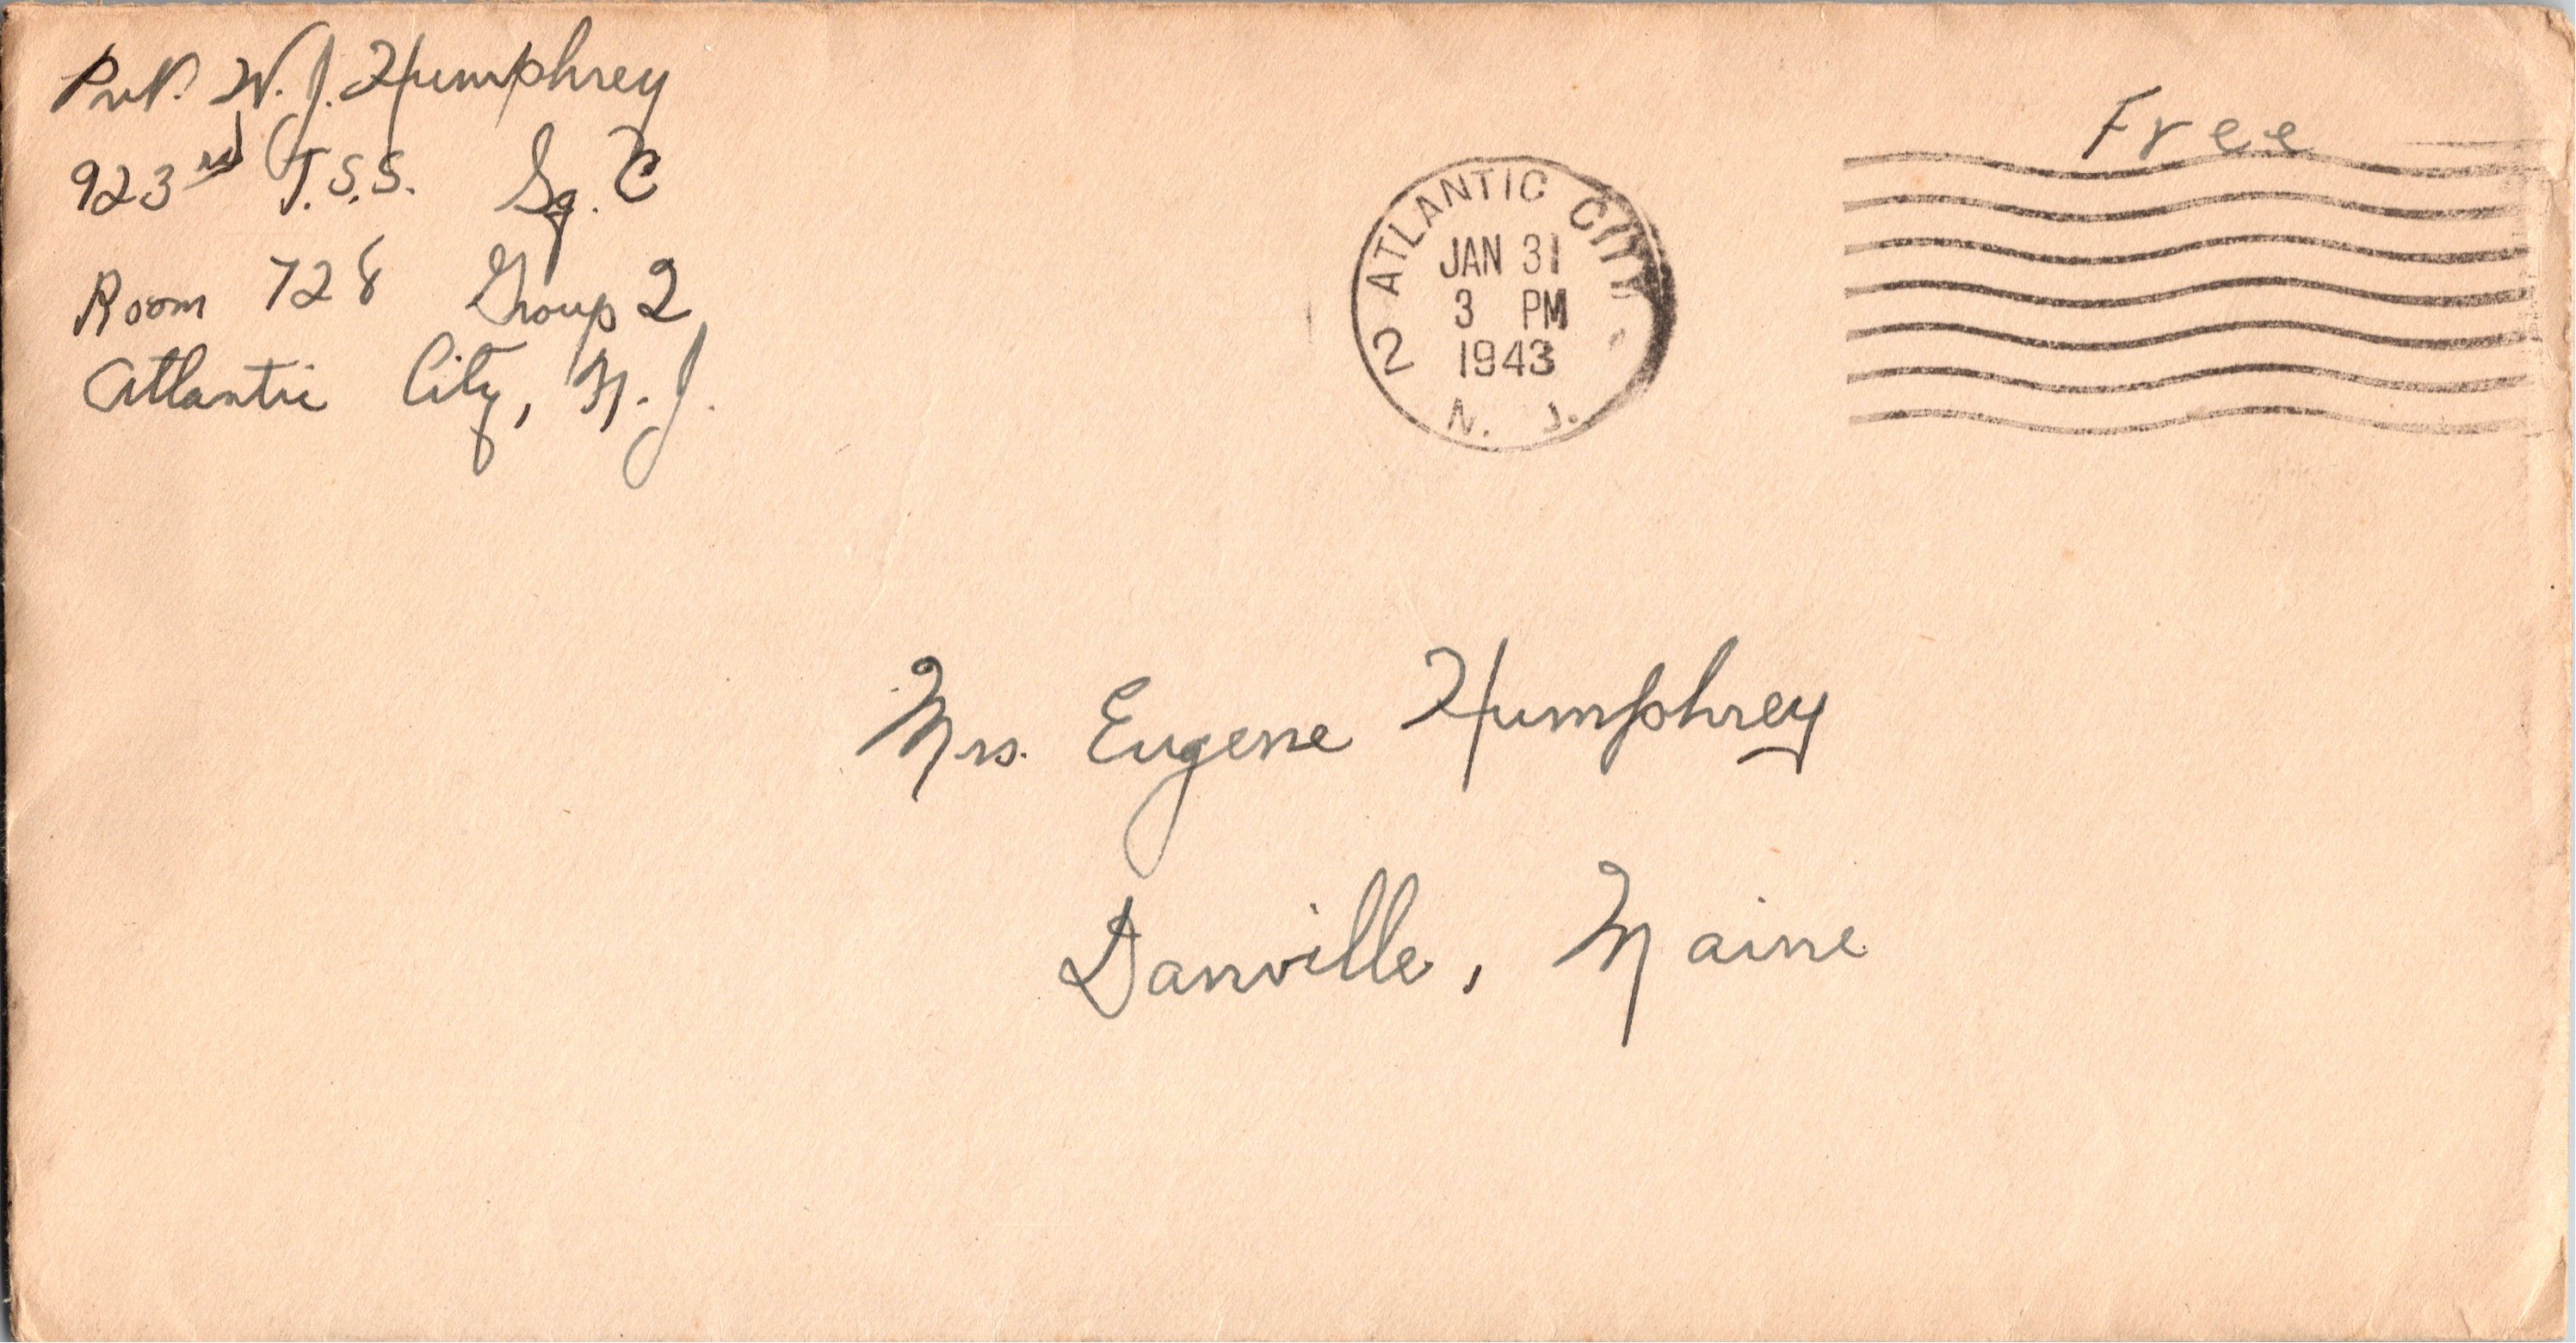 Pvt. W. J. Humphrey
923rd T.S.S. Sq. C
Room 728 Group 2
Atlantic City, N.J.
Free
2 ATLANTIC CITY
JAN 31
3 PM
1943
N. J.
Mrs. Eugene Humphrey
Danville, Maine